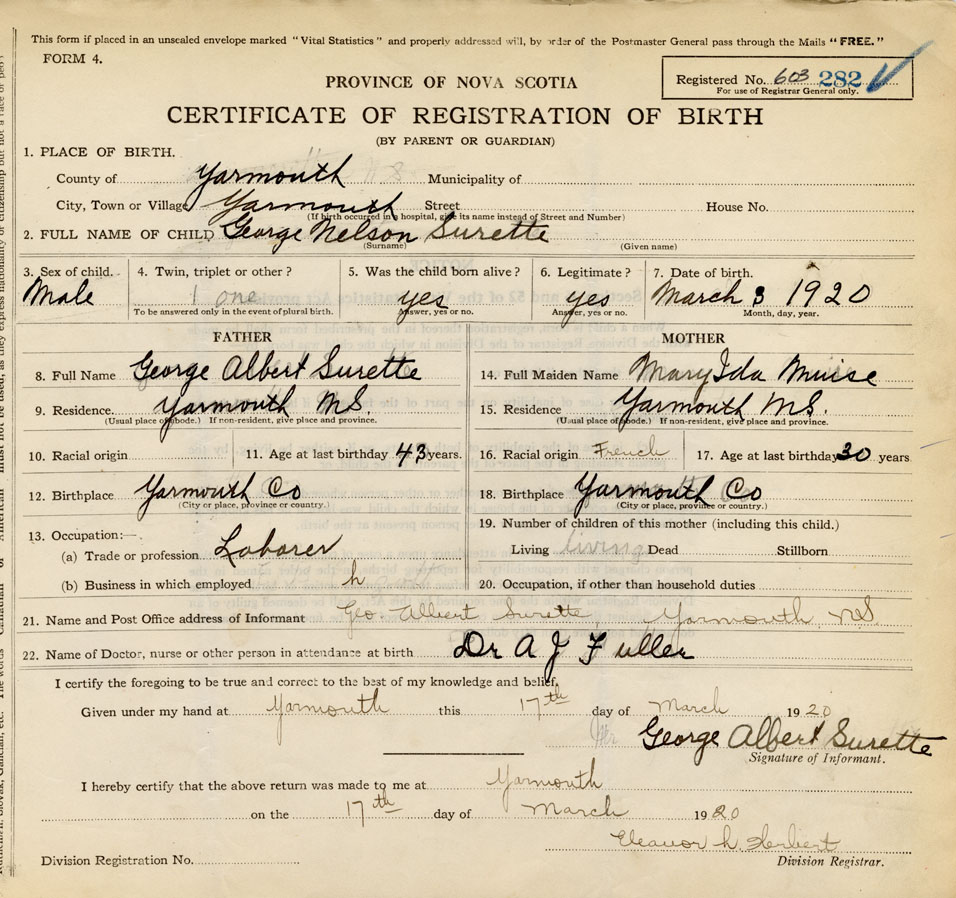 This form if placed in an unscaled envelope marked "Vital Statistics" and properly addressed will, by order of the Postmaster General pass through the Mails "FREE."
FORM 4.
Registered No. 603 282
For use of Registrar General only.
PROVINCE OF NOVA SCOTIA
CERTIFICATE OF REGISTRATION OF BIRTH
(BY PARENT OR GUARDIAN)
1. PLACE OF BIRTH.
County of Yarmouth Municipality of
City, Town or Village Yarmouth Street House No.
(If birth occurred in a hospital, give its name instead of Street and Number)
2. FULL NAME OF CHILD George Nelson Surette
(Surname) (Given name)
3. Sex of child. 4. Twin, triplet or other? 5. Was the child born alive? 6. Legitimate? 7. Date of birth.
Male 1 one yes yes March 3 1920
To be answered only in the event of plural birth. Answer, yes or no. Answer, yes or no. Month, day, year.
FATHER MOTHER
8. Full Name George Albert Surette 14. Full Maiden Name Mary Ida Muise
9. Residence. Yarmouth N.S. 15. Residence Yarmouth N.S.
(Usual place of abode.) If non-resident, give place and province. (Usual place of abode.) If non-resident, give place and province.
10. Racial origin 11. Age at last birthday 43 years. 16. Racial origin French 17. Age at last birthday 30 years
12. Birthplace Yarmouth Co 18. Birthplace Yarmouth Co
(City or place, province or country.) (City or place, province or country.)
13. Occupation:— 19. Number of children of this mother (including this child.)
(a) Trade or profession Laborer Living living Dead Stillborn
(b) Business in which employed h 20. Occupation, if other than household duties
21. Name and Post Office address of Informant Geo Albert Surette, Yarmouth NS
22. Name of Doctor, nurse or other person in attendance at birth Dr A J Fuller
I certify the foregoing to be true and correct to the best of my knowledge and belief.
Given under my hand at Yarmouth this 17th day of March 1920
George Albert Surette
Signature of Informant.
I hereby certify that the above return was made to me at Yarmouth
on the 17th day of March 1920
Eleanor h. Herbert
Division Registration No. Division Registrar.